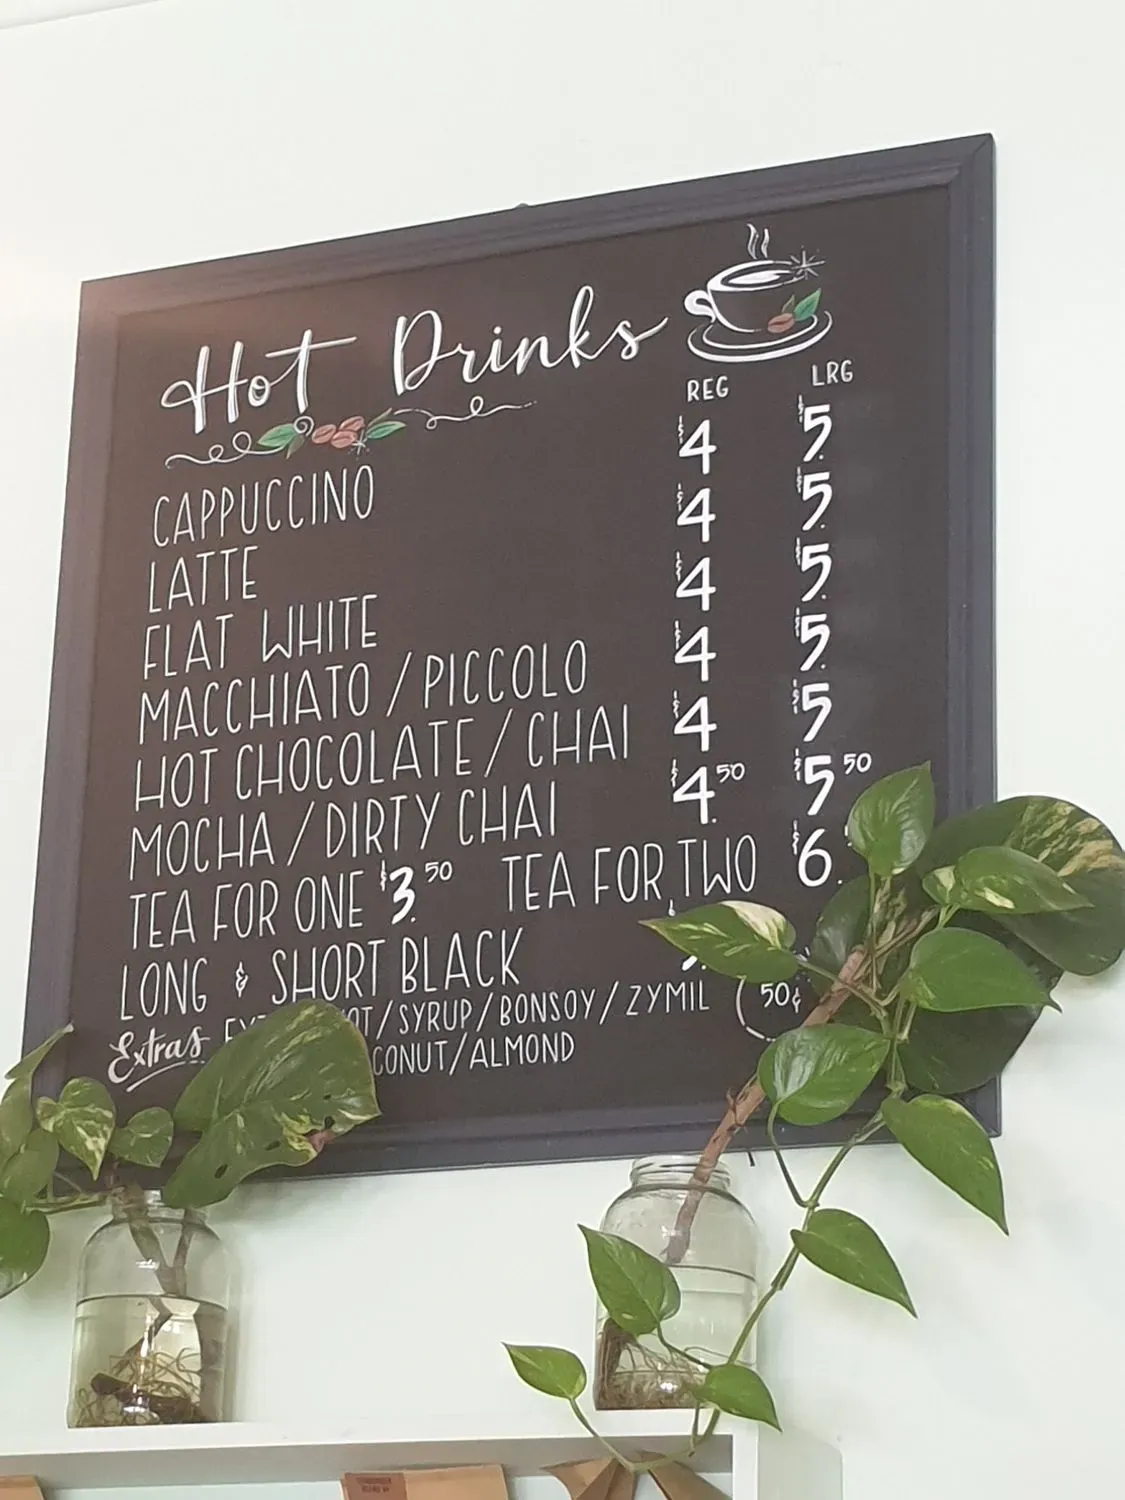 Hot Drinks
REG LRG
CAPPUCCINO $4. $5.
LATTE $4. $5.
FLAT WHITE $4. $5.
MACCHIATO / PICCOLO $4. $5.
HOT CHOCOLATE / CHAI $4. $5.
MOCHA / DIRTY CHAI $4.50 $5.50
TEA FOR ONE $3.50 TEA FOR TWO $6.
LONG & SHORT BLACK
Extras /SYRUP/BONSOY/ZYMIL 50¢
/ALMOND